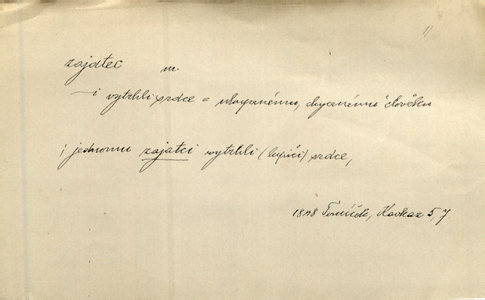 zajatec m.
– i vytrhli srdce = ulapenému, chycenému člověku
; jednomu zajatci vytrhli (lupiči) srdce,
18 Kavkaz 5,7